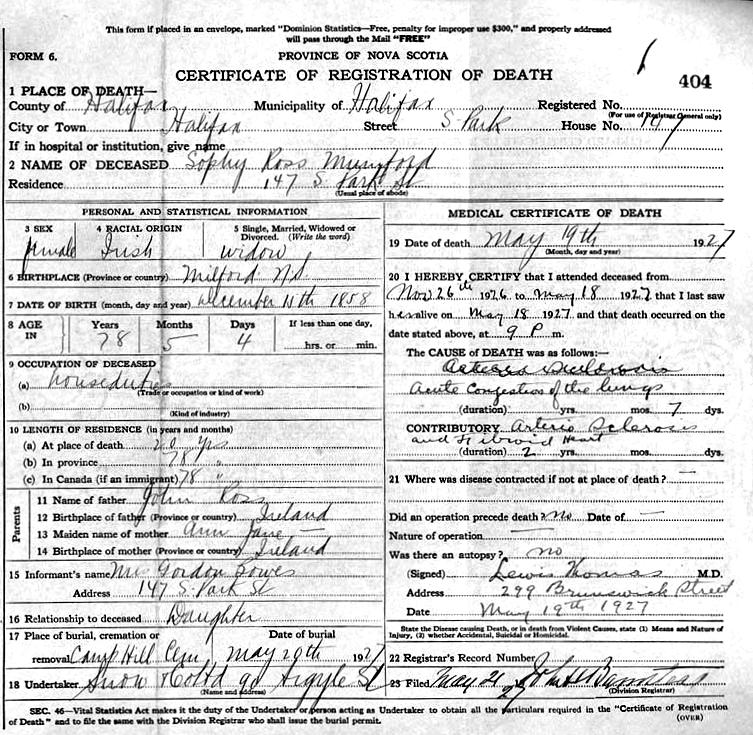 This form if placed in an envelope, marked "Dominion Statistics—Free, penalty for improper use $300," and properly addressed
will pass through the Mail "FREE"
FORM 6.
PROVINCE OF NOVA SCOTIA
CERTIFICATE OF REGISTRATION OF DEATH
404
1 PLACE OF DEATH—
County of Halifax Municipality of Halifax Registered No.
(For use of Registrar General only)
City or Town Halifax Street S. Park House No. 147
If in hospital or institution, give name
2 NAME OF DECEASED Sophy Ross Mumford
Residence 147 S. Park St
(Usual place of abode)
PERSONAL AND STATISTICAL INFORMATION
3 SEX 4 RACIAL ORIGIN 5 Single, Married, Widowed or Divorced. (Write the word)
female Irish widow
6 BIRTHPLACE (Province or country) Milford N.S.
7 DATE OF BIRTH (month, day and year) December 14th 1858
8 AGE IN Years Months Days If less than one day,
78 5 4 hrs. or min.
9 OCCUPATION OF DECEASED
(a) houseduties
(Trade or occupation or kind of work)
(b)
(Kind of industry)
10 LENGTH OF RESIDENCE (in years and months)
(a) At place of death 20 yrs
(b) In province 78 "
(c) In Canada (if an immigrant) 78 "
Parents
11 Name of father John Ross
12 Birthplace of father (Province or country) Ireland
13 Maiden name of mother Ann Jane —
14 Birthplace of mother (Province or country) Ireland
15 Informant's name Mrs Gordon Bowes
Address 147 S. Park St
16 Relationship to deceased Daughter
17 Place of burial, cremation or Date of burial
removal Camp Hill Cem May 20th 1927
18 Undertaker Snow & Co Ltd 90 Argyle St
(Name and address)
MEDICAL CERTIFICATE OF DEATH
19 Date of death May 19th 1927
(Month, day and year)
20 I HEREBY CERTIFY that I attended deceased from
Nov 26th 1926 to May 18 1927 that I last saw
her alive on May 18 1927 and that death occurred on the
date stated above, at 9 P m.
The CAUSE OF DEATH was as follows:—
Arterio Sclerosis
Acute Congestion of the lungs
(duration) yrs. mos. 7 dys.
CONTRIBUTORY Arterio Sclerosis
and Fibroid Heart
(duration) 2 yrs. mos. dys.
21 Where was disease contracted if not at place of death? —
Did an operation precede death? no Date of —
Nature of operation —
Was there an autopsy? no
(Signed) Lewis Thomas M.D.
Address 299 Brunswick Street
Date May 19th 1927
State the Disease causing Death, or in death from Violent Causes, state (1) Means and Nature of
Injury, (2) whether Accidental, Suicidal or Homicidal.
22 Registrar's Record Number
23 Filed May 21 27
(Division Registrar)
SEC. 46—Vital Statistics Act makes it the duty of the Undertaker or person acting as Undertaker to obtain all the particulars required in the "Certificate of Registration
of Death" and to file the same with the Division Registrar who shall issue the burial permit.
(OVER)